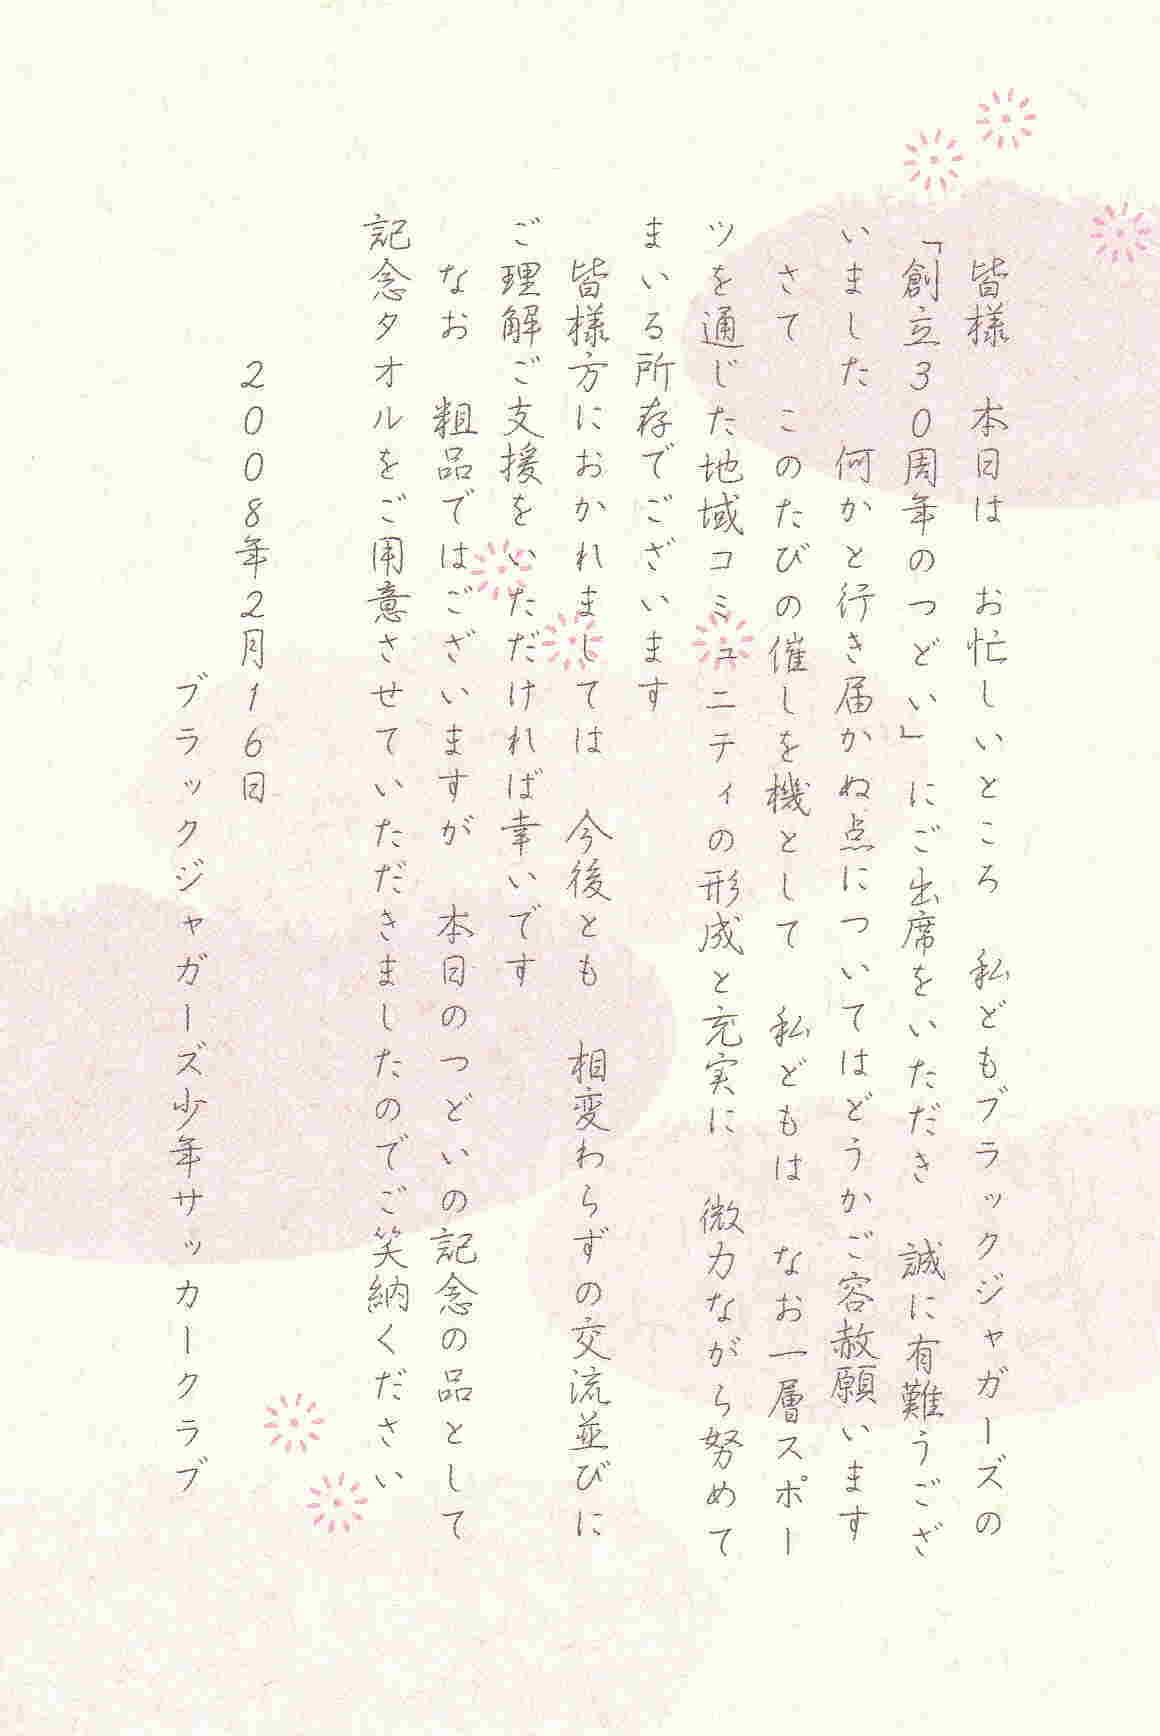 皆様　本日は　お忙しいところ　私どもブラックジャガーズの
「創立３０周年のつどい」にご出席をいただき　誠に有難うござ
いました　何かと行き届かぬ点についてはどうかご容赦願います
さて　このたびの催しを機として　私どもは　なお一層スポー
ツを通じた地域コミュニティの形成と充実に　微力ながら努めて
まいる所存でございます
皆様方におかれましては　今後とも　相変わらずの交流並びに
ご理解ご支援をいただければ幸いです
なお　粗品ではございますが　本日のつどいの記念の品として
記念タオルをご用意させていただきましたのでご笑納ください
２００８年２月１６日
ブラックジャガーズ少年サッカークラブ